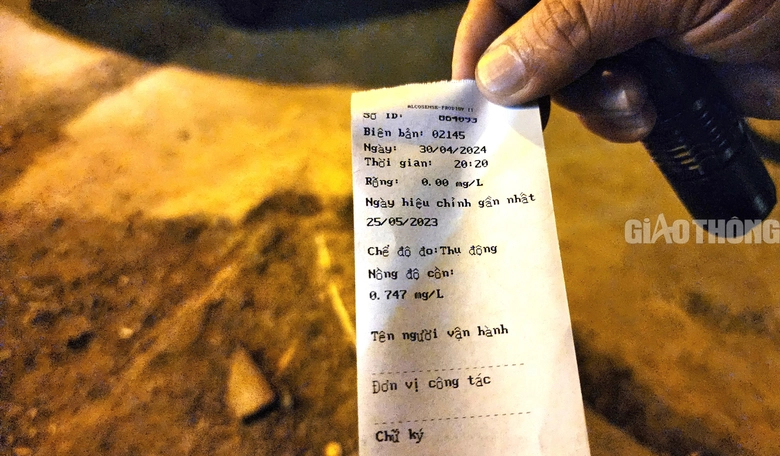 ALCOSENSE-PRODIGY II
Số ID: 004093
Biên bản: 02145
Ngày: 30/04/2024
Thời gian: 20:20
Rỗng: 0.00 mg/L
Ngày hiệu chỉnh gần nhất
25/05/2023
Chế độ đo:Thụ động
Nồng độ cồn:
0.747 mg/L
Tên người vận hành
Đơn vị công tác
Chữ ký
GIAO THÔNG